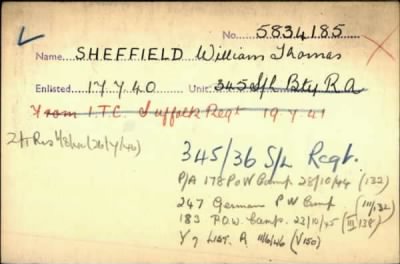 No. 5834185
Name SHEFFIELD William Thomas
Enlisted 17 7 40 Unit 345 S/L Bty R A
From I.T.C. Suffolk Regt 19.7.41
345/36 S/L Regt.
P/A 178 P o W Camp 28/10/44 (132)
247 German P W Camp (III/132)
183 P.O.W. Camp. 23/10/45 (III 138)
Y 7 LIST. A 11/6/46 (V150)